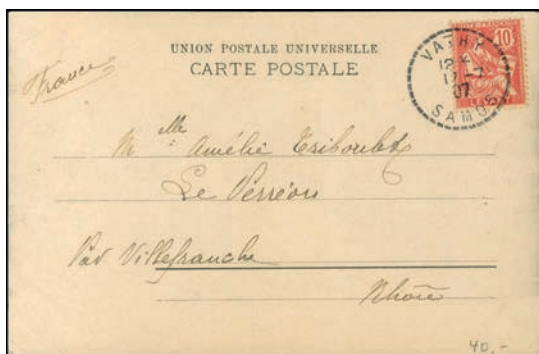 UNION POSTALE UNIVERSELLE
CARTE POSTALE
France
VATHY
12
17-7
07
SAMOS
10
Mlle Amélie Triboulet
Le Perréon
Par Villefranche
Rhône
40,-